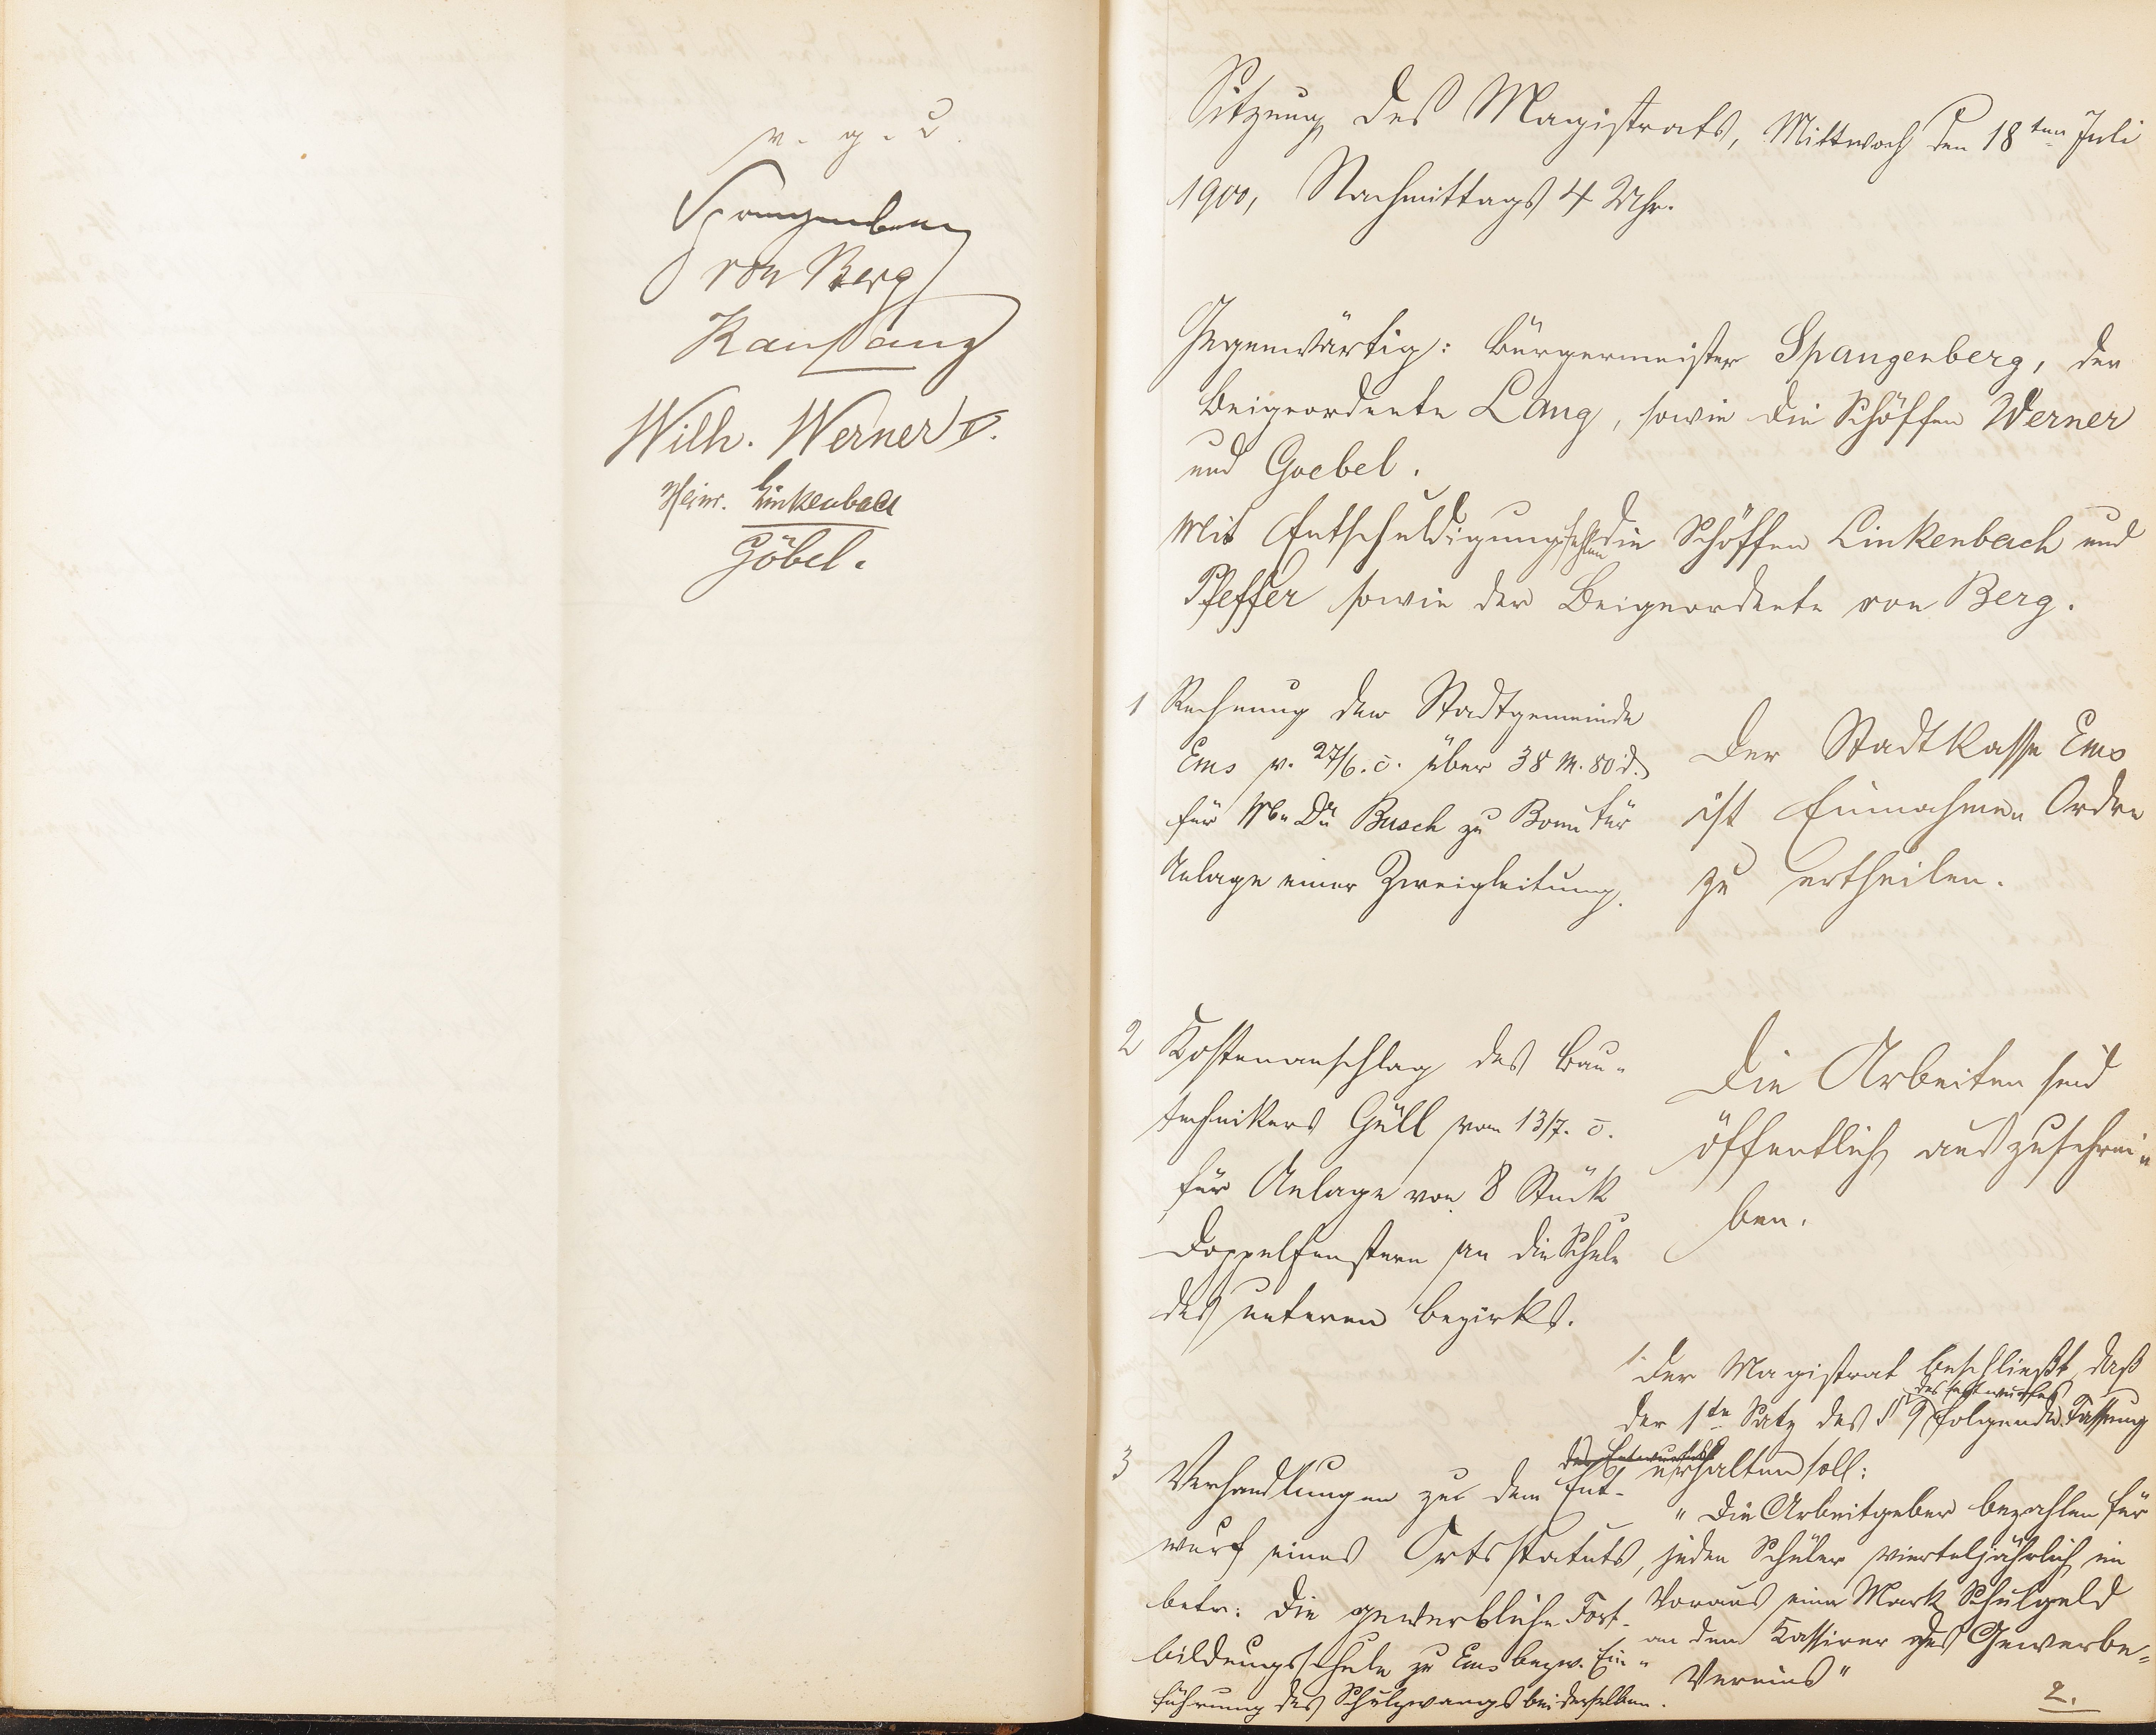 v. g. u.
Spangenberg
von Berg
Wilh. Werner
Heinr. Linkenbach
Göbel.
Sitzung des Magistrats, Mittwoch den 18ten Juli
1900, Nachmittags 4 Uhr.
Gegenwärtig: Bürgermeister Spangenberg, der
Beigeordnete Lang, sowie die Schöffen Werner
und Goebel.
Mit Entschuldigung fehlen die Schöffen Linkenbach und
Pfeffer sowie der Beigeordnete von Berg.
1 Rechnung der Stadtgemeinde
Ems v. 27/6. c. über 38 M. 80 d.
für Busch zu Bonn für
Anlage einer Zweigleitung.
Der Stadtkasse Ems
ist Einnahmen Ordre
zu ertheilen.
2 Kostenanschlag des Bau-
technikers Güll vom 13/7. c.
für Anlage von 8 Stück
Doppelfenstern an die Schule
des unteren Bezirks.
Die Arbeiten sind
öffentlich auszuschrei-
ben.
3 Verhandlungen zu dem Ent-
wurf eines Ortsstatuts,
betr: die gewerbliche Fort-
bildungsschule zu Ems bezw. Ein-
führung des Schulzwangs bei derselben.
1. Der Magistrat beschließt, daß
des Entwurfes
der 1te Satz des § 9 folgende Fassung
des Entwurfes
erhalten soll:
"Die Arbeitgeber bezahlen für
jeden Schüler vierteljährlich im
Voraus eine Mark Schulgeld
an den Kassirer des Gewerbe-
Vereins"
2.